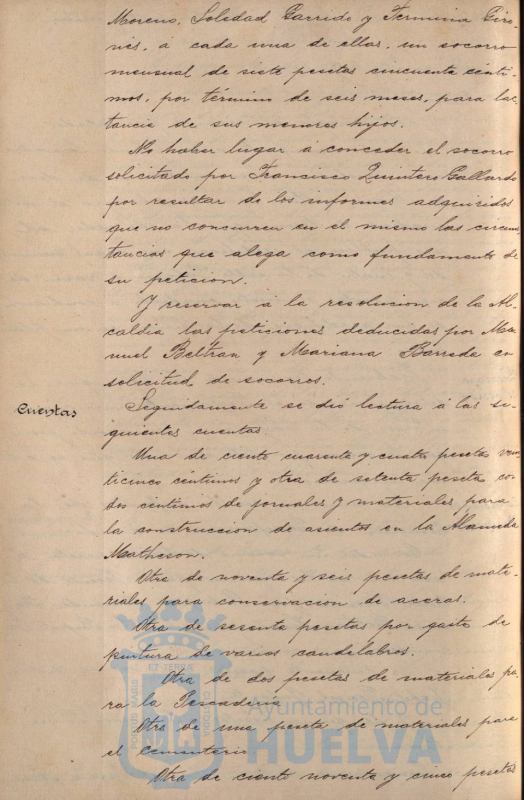 Moreno, Soledad Garrido y Fermina Giro-
nés, á cada una de ellas, un socorro
mensual de siete pesetas cincuenta cénti-
mos, por término de seis meses, para lac-
tancia de sus menores hijos.
No haber lugar á conceder el socorro
solicitado por Francisco Quintero Gallardo
por resultar de los informes adquiridos
que no concurren en el mismo las circuns
tancias que alega como fundamento de
su peticion.
Y reservar á la resolucion de la Al-
caldia las peticiones deducidas por Ma-
nuel Beltran y Mariana Barreda en
solicitud de socorros.
Cuentas
Seguidamente se dió lectura á las si-
guientes cuentas
Una de ciento cuarenta y cuatro pesetas vein
ticinco céntimos y otra de setenta pesetas con
dos centimos de jornales y materiales para
la construccion de asientos en la Alameda
Matheson.
Otra de noventa y seis pesetas de mate-
riales para conservacion de aceras.
Otra de sesenta pesetas por gasto de
pintura de varios candelabros.
Otra de dos pesetas de materiales pa-
ra la Pescaderia
Otra de una peseta de materiales para
el cementerio
Otra de ciento noventa y cinco pesetas
Ayuntamiento de
HUELVA
PORTUS MARIS
ET TERRÆ
CUSTODIA